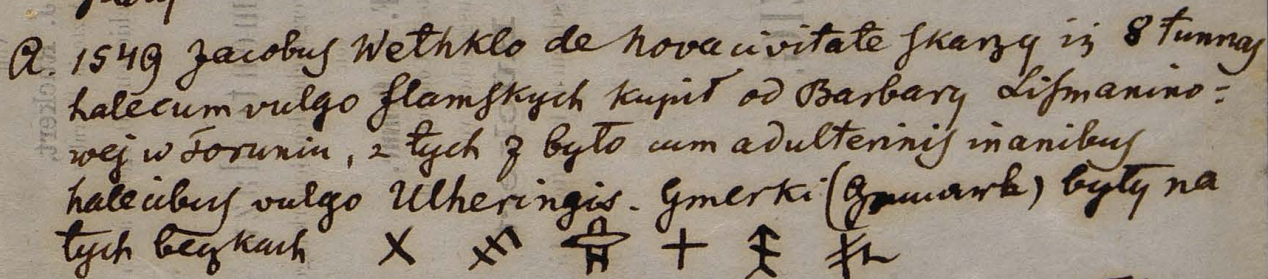 R. 1549 Jacobus Wethklo de nova civitate skarży iż 8 tunnas
halecum vulgo flamskych kupił od Barbary Lismanino=
wej w Toruniu, z tych 7 było cum adulterinis inanibus
halecibus vulgo Ulheringis. Gmerki ( ) były na
tych beczkach